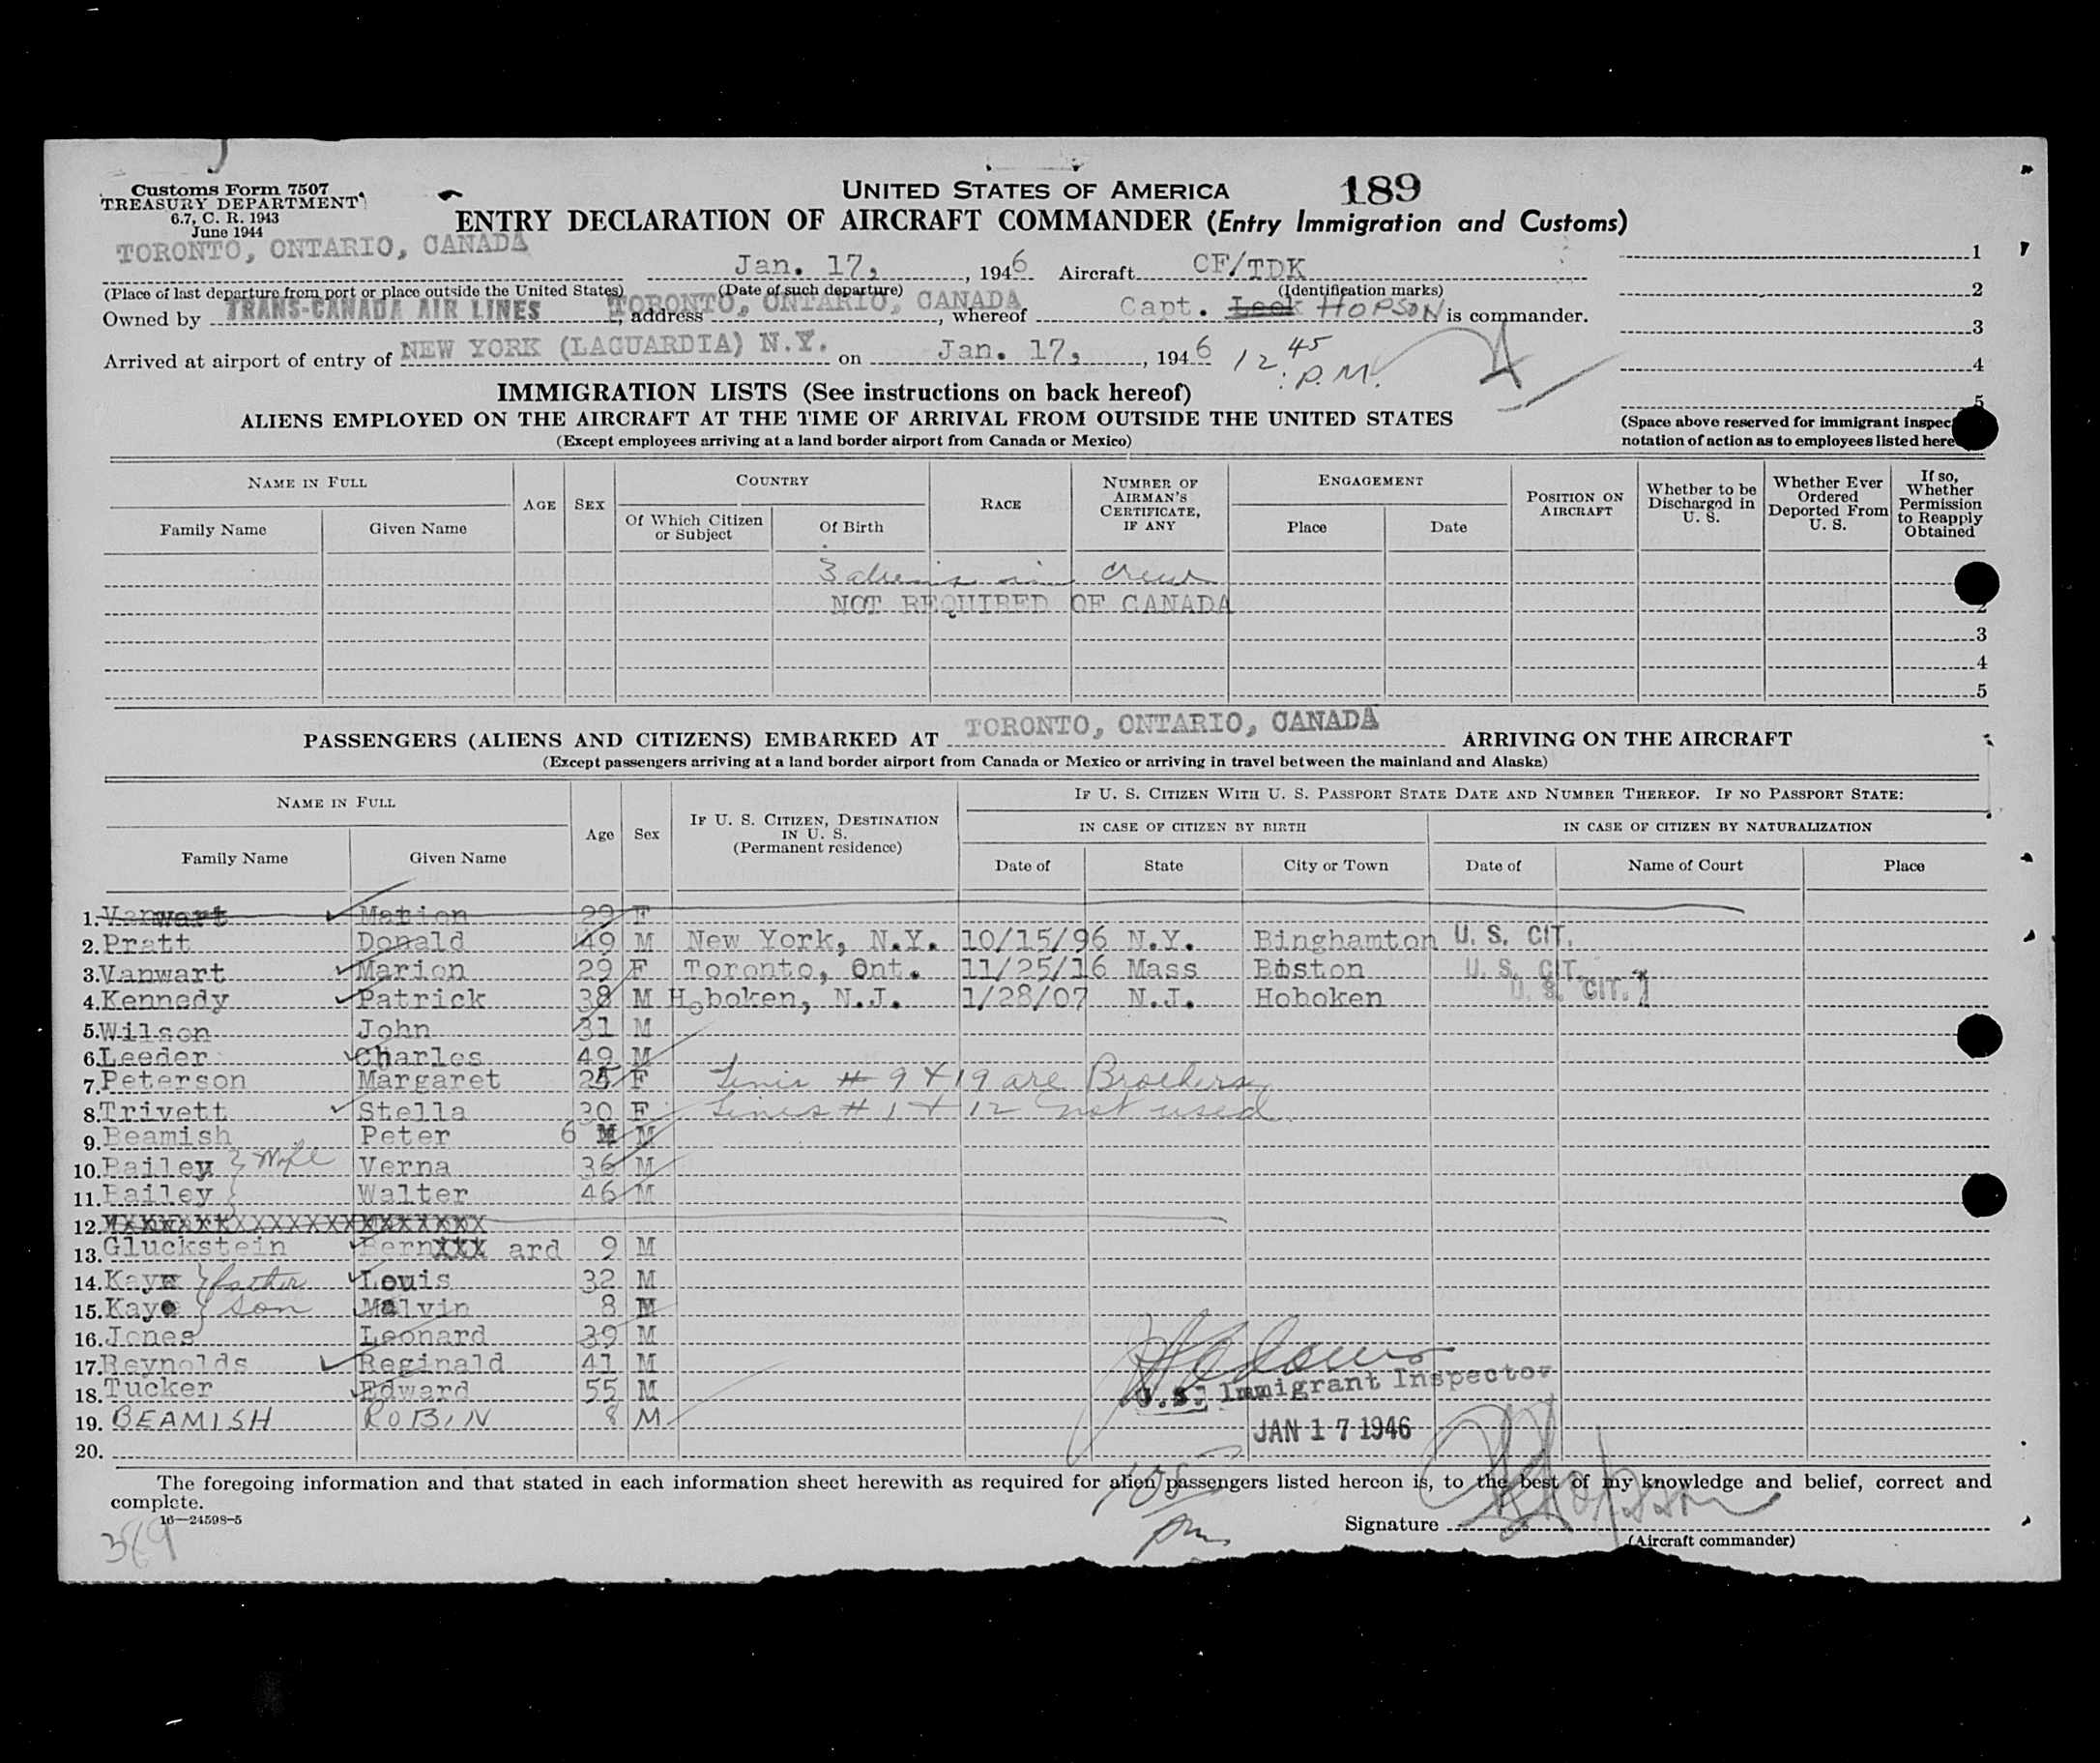 Customs Form 7507
TREASURY DEPARTMENT
6.7, C. R. 1943
June 1944
UNITED STATES OF AMERICA 189
ENTRY DECLARATION OF AIRCRAFT COMMANDER (Entry Immigration and Customs)
TORONTO, ONTARIO, CANADA Jan. 17, 1946 Aircraft CF/TDK
(Place of last departure from port or place outside the United States) (Date of such departure) (Identification marks)
Owned by TRANS-CANADA AIR LINES, address TORONTO, ONTARIO, CANADA, whereof Capt. HOPSON is commander.
Arrived at airport of entry of NEW YORK (LAGUARDIA) N.Y. on Jan. 17, 1946 12 45 P.M.
1
2
3
4
5
IMMIGRATION LISTS (See instructions on back hereof)
ALIENS EMPLOYED ON THE AIRCRAFT AT THE TIME OF ARRIVAL FROM OUTSIDE THE UNITED STATES
(Except employees arriving at a land border airport from Canada or Mexico)
(Space above reserved for Immigrant Inspec
notation of action as to employees listed here
NAME IN FULL
Family Name Given Name
AGE SEX
COUNTRY
Of Which Citizen or Subject Of Birth
RACE
NUMBER OF AIRMAN'S CERTIFICATE, IF ANY
ENGAGEMENT
Place Date
POSITION ON AIRCRAFT
Whether to be Discharged in U. S.
Whether Ever Ordered Deported From U. S.
If so, Whether Permission to Reapply Obtained
3 aliens in crew
NOT REQUIRED OF CANADA
2
3
4
5
PASSENGERS (ALIENS AND CITIZENS) EMBARKED AT TORONTO, ONTARIO, CANADA ARRIVING ON THE AIRCRAFT
(Except passengers arriving at a land border airport from Canada or Mexico or arriving in travel between the mainland and Alaska)
NAME IN FULL
Family Name Given Name
Age Sex
IF U. S. CITIZEN, DESTINATION IN U. S. (Permanent residence)
IF U. S. CITIZEN WITH U. S. PASSPORT STATE DATE AND NUMBER THEREOF. IF NO PASSPORT STATE:
IN CASE OF CITIZEN BY BIRTH IN CASE OF CITIZEN BY NATURALIZATION
Date of State City or Town Date of Name of Court Place
1. Vanwart Marion 29 F
2. Pratt Donald 49 M New York, N.Y. 10/15/96 N.Y. Binghamton U. S. CIT.
3. Vanwart Marion 29 F Toronto, Ont. 11/25/16 Mass Boston U. S. CIT.
4. Kennedy Patrick 38 M Hoboken, N.J. 1/28/07 N.J. Hoboken U. S. CIT.
5. Wilson John 31 M
6. Leeder Charles 49 M
7. Peterson Margaret 25 F Lines # 9 & 19 are Brothers
8. Trivett Stella 30 F Lines # 1 & 12 not used
9. Beamish Peter 6 M
10. Bailey } Wife Verna 36 M
11. Bailey Walter 46 M
12. XXXXXXXXXXXXXXXXXXXX
13. Gluckstein Bernxxx ard 9 M
14. Kay } father Louis 32 M
15. Kay } son Malvin 8 M
16. Jones Leonard 39 M
17. Reynolds Reginald 41 M
18. Tucker Edward 55 M
U.S. Immigrant Inspector
19. BEAMISH ROBIN 8 M
JAN 17 1946
20.
The foregoing information and that stated in each information sheet herewith as required for alien passengers listed hereon is, to the best of my knowledge and belief, correct and
complete.
16—24598-5
Signature Hopson
(Aircraft commander)